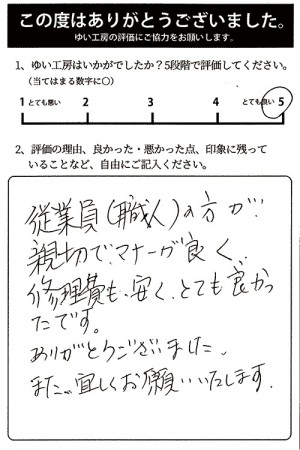 この度はありがとうございました。
ゆい工房の評価にご協力をお願いします。
1、ゆい工房はいかがでしたか？5段階で評価してください。
（当てはまる数字に○）
1 とても悪い 2 3 4 とても良い 5
2、評価の理由、良かった・悪かった点、印象に残って
いることなど、自由にご記入ください。
従業員(職人)の方が
親切で、マナーが良く、
修理費も、安く、とても良かっ
たです。
ありがとうございました、
また、宜しくお願いいたします．